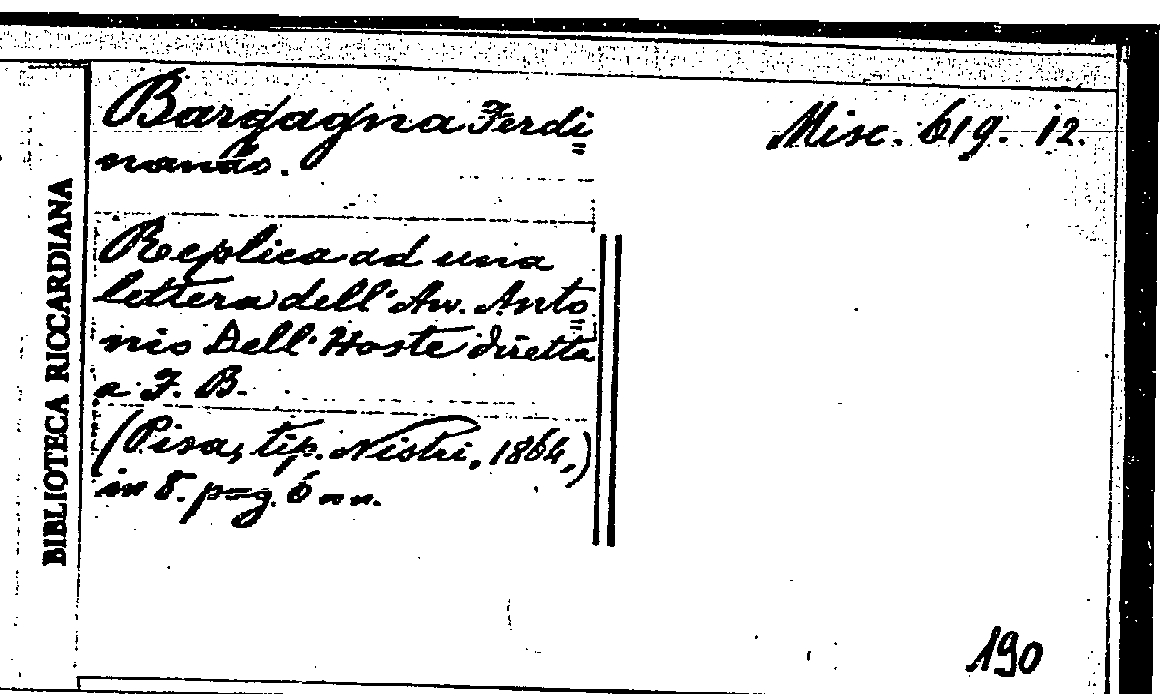 BIBLIOTECA RICCARDIANA
Bargagna Ferdi=
nando.
Misc. 619. 12.
Replica ad una
lettera dell' Avv. Anto=
nio Dell' Hoste diretta
a F. B.
(Pisa, tip. Nistri, 1864,)
in 8. pag. 6 nn.
190